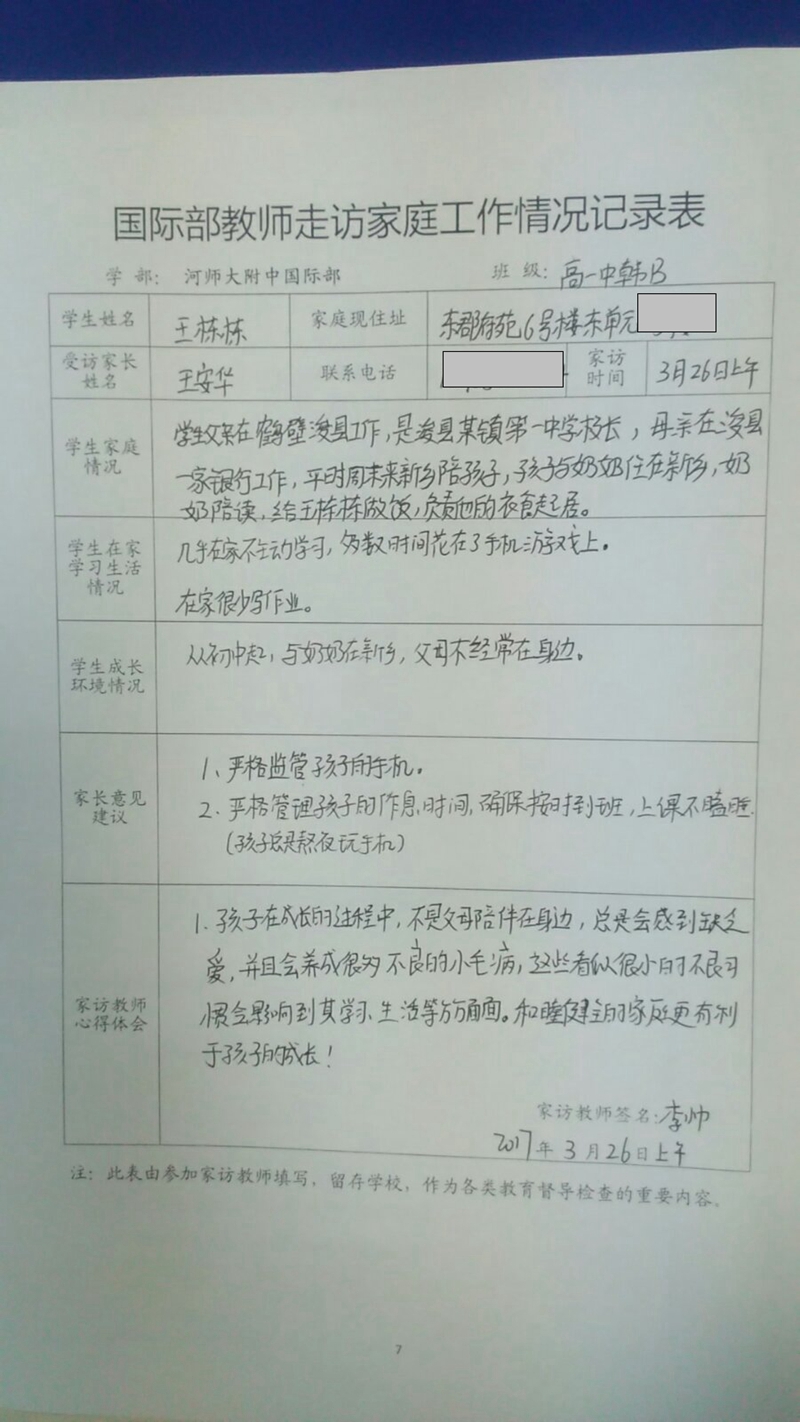 国际部教师走访家庭工作情况记录表
学 部： 河师大附中国际部 班 级：高一中韩B
学生姓名 王栋栋 家庭现住址 东郡府苑6号楼东单元
受访家长 姓名 王安华 联系电话 家访 时间 3月26日上午
学生家庭 情况
学生父亲在鹤壁浚县工作，是浚县某镇第一中学校长，母亲在浚县
一家银行工作，平时周末来新乡陪孩子，孩子与奶奶住在新乡，奶
奶陪读，给王栋栋做饭，负责他的衣食起居。
学生在家 学习生活 情况
几乎在家不主动学习，多数时间花在了手机游戏上。
在家很少写作业。
学生成长 环境情况
从初中起，与奶奶在新乡，父母不经常在身边。
家长意见 建议
1、严格监管孩子的手机。
2. 严格管理孩子的作息时间，确保按时到班，上课不瞌睡.
（孩子总是熬夜玩手机）
家访教师 心得体会
1. 孩子在成长的过程中，不是父母陪伴在身边，总是会感到缺乏
爱，并且会养成很多不良的小毛病，这些看似很小的不良习
惯会影响到其学习、生活等方方面面。和睦健全的家庭更有利
于孩子的成长！
家访教师签名：李帅
2017年3月26日上午
注：此表由参加家访教师填写，留存学校，作为各类教育督导检查的重要内容。
7